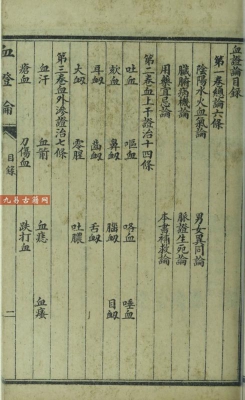 血證論目錄
第一卷總論六條
陰陽水火血氣論 男女異同論
臟腑病機論 脈證生死論
用藥宜忌論 本書補救論
第二卷血上干證治十四條
吐血 嘔血 咯血 唾血
欬血 鼻衄 腦衄 目衄
耳衄 齒衄 舌衄
大衄 零腥 吐膿
第三卷血外滲證治七條
血汗 血箭 血痣 血瘙
瘡血 刀傷血 跌打血
血證論 目錄 二
九易古籍网